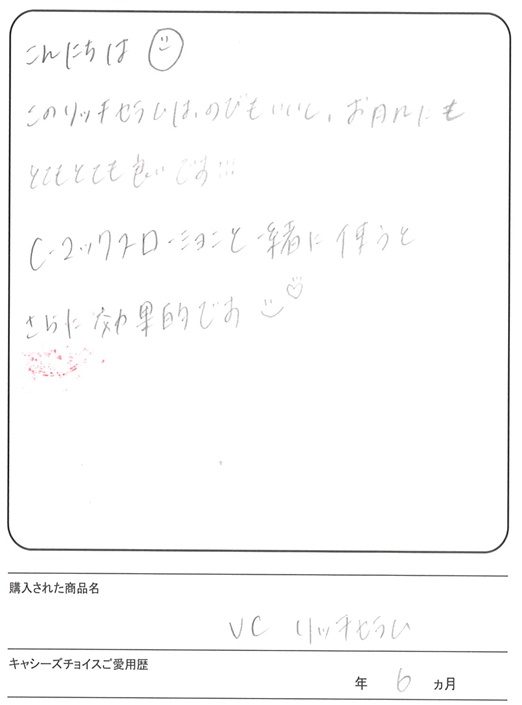 こんにちは
このリッチセラムは、のびもいいし、お肌にも
とてもとても良いです!!!
C-マックスローションと一緒に使うと
さらに効果的です
購入された商品名
VC リッチセラム
キャシーズチョイスご愛用歴
年 6 ヵ月